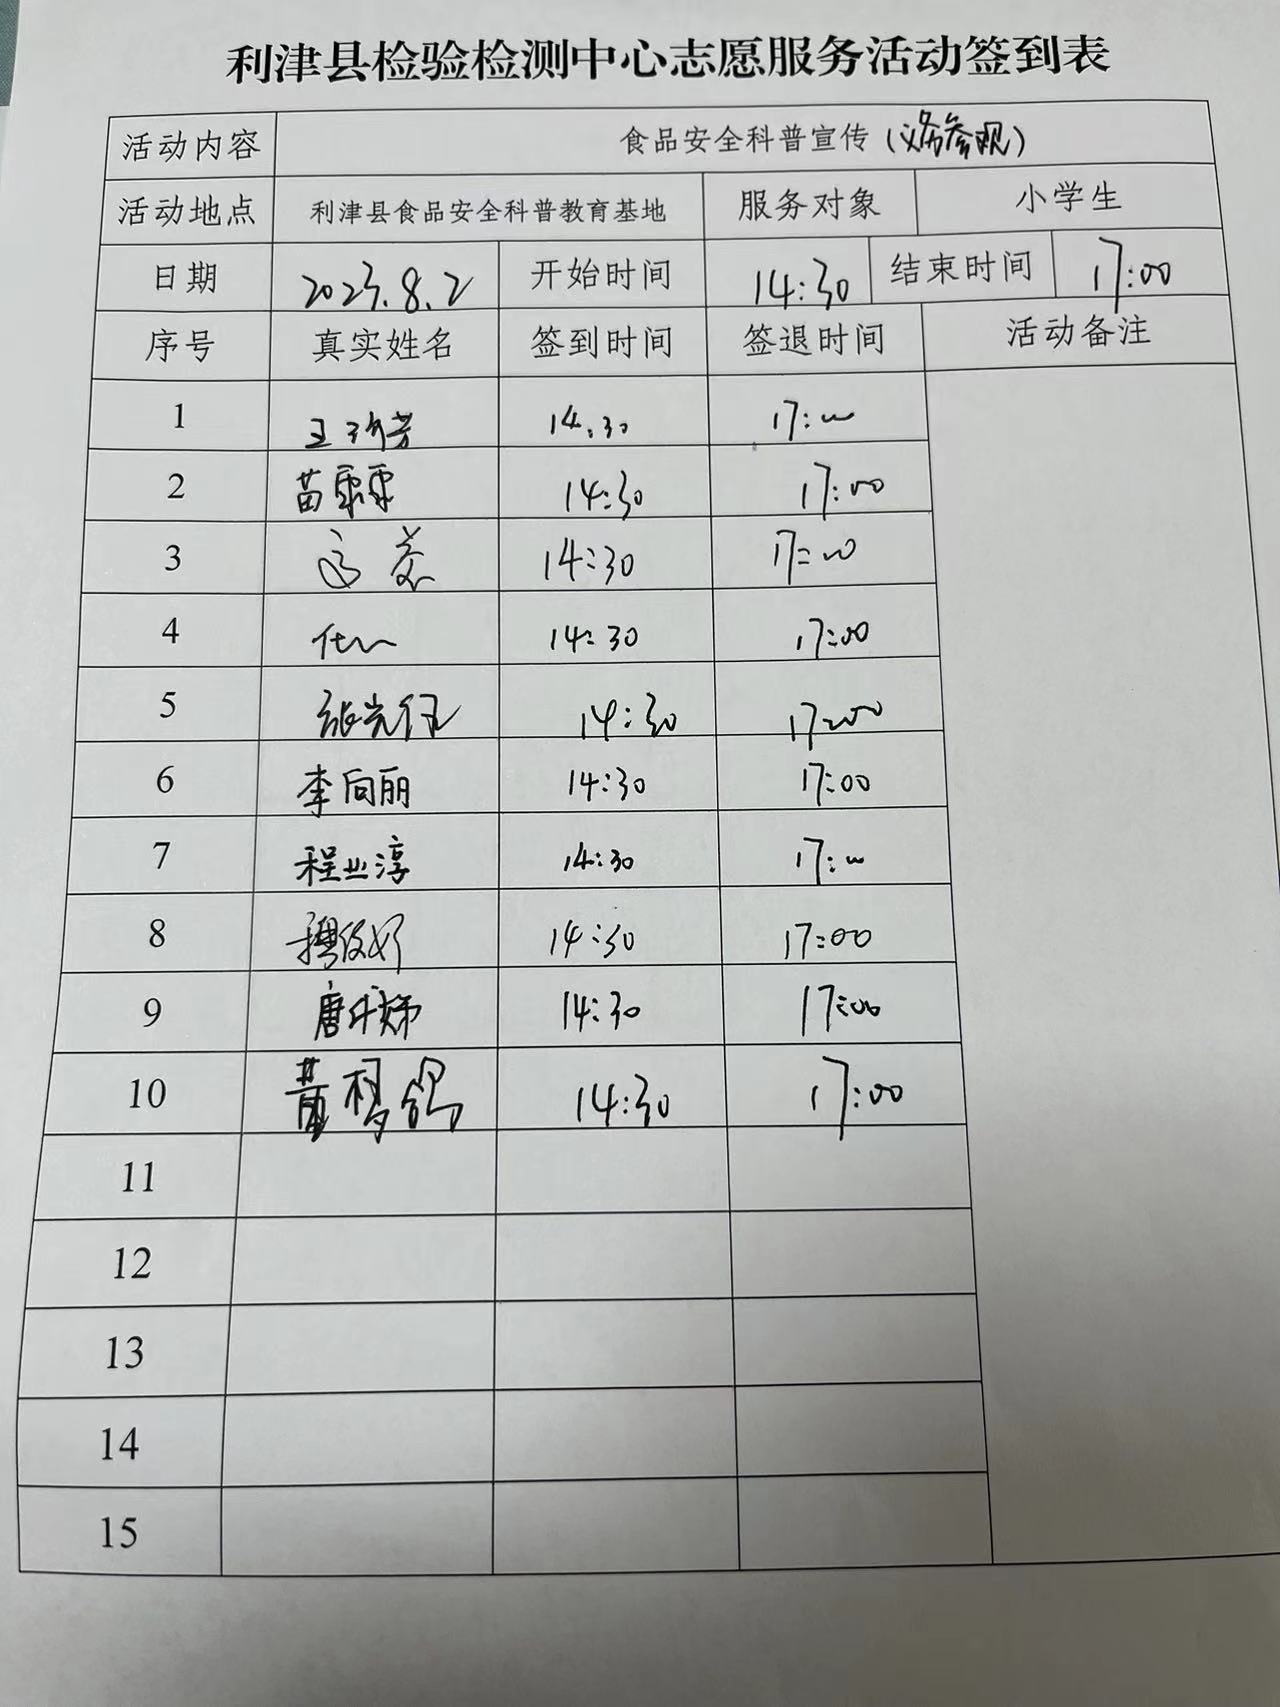 利津县检验检测中心志愿服务活动签到表
活动内容 食品安全科普宣传(参观)
活动地点 利津县食品安全科普教育基地 服务对象 小学生
日期 2023.8.2 开始时间 14:30 结束时间 17:00
序号 真实姓名 签到时间 签退时间 活动备注
1 14:30 17:00
2 14:30 17:00
3 14:30 17:00
4 14:30 17:00
5 14:30 17:00
6 李向丽 14:30 17:00
7 程业淳 14:30 17:00
8 14:30 17:00
9 14:30 17:00
10 14:30 17:00
11
12
13
14
15